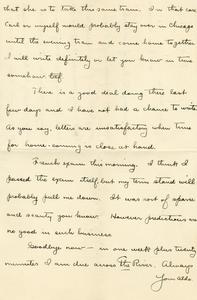 that she is to take this same train. In that case
Carl or myself would probably stay over in Chicago
until the evening train and come home together.
I will write definitely or let you know in time
somehow
There is a good deal doing these last
few days and I have not had a chance to write.
As you say, letters are unsatisfactory when time
for home-coming is so close at hand.
French exam this morning. I think I
passed the exam itself but my term stand will
probably pull me down. It was sort of sparse
and scanty you know. However predictions are
no good in such business
Goodbye now — in one week plus twenty
minutes I am due across the River. Always
Your